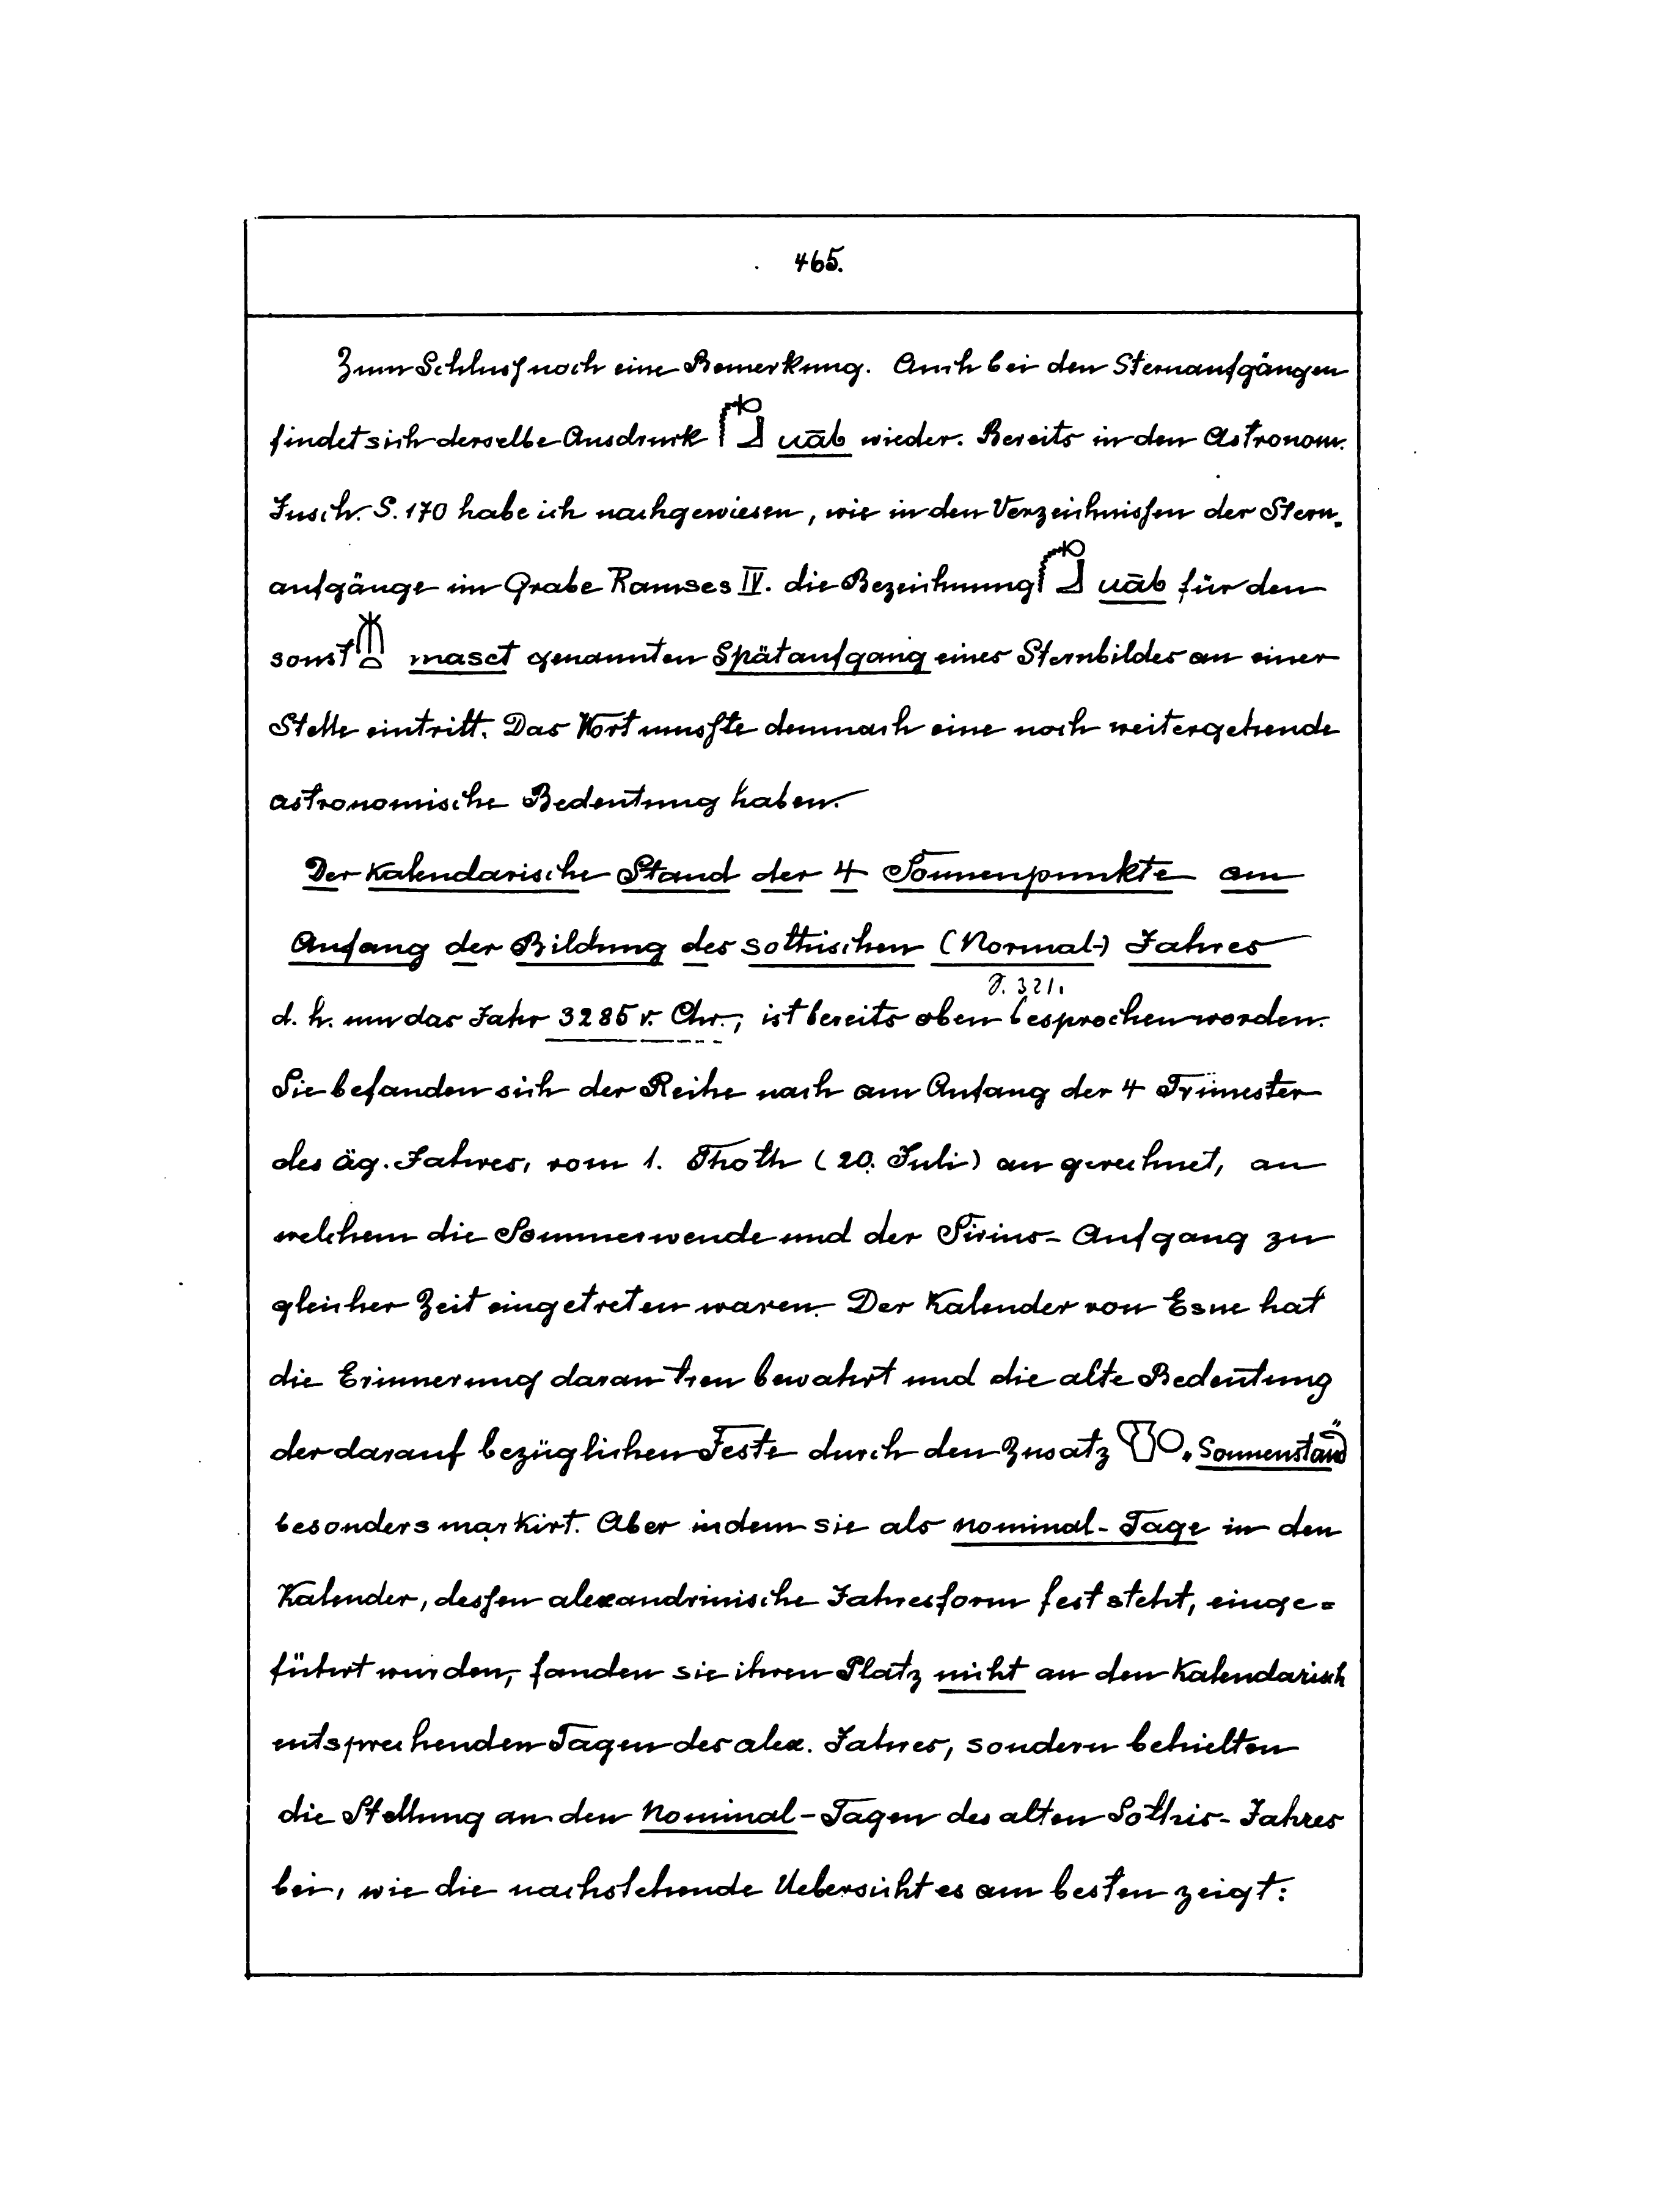 465.
Zum Schluſs noch eine Bemerkung. Auch bei den Sternaufgängen
findet sich derselbe Ausdruck uāb wieder. Bereits in den Astronom.
Insch. S. 170 habe ich nachgewiesen, wie in den Verzeichniſsen der Stern-
aufgänge im Grabe Ramses IV. die Bezeichnung uāb für den
sonst masct genannten Spätaufgang eines Sternbildes an einer
Stelle eintritt. Das Wort muſste demnach eine noch weitergehende
astronomische Bedeutung haben.
Der kalendarische Stand der 4 Sonnenpunkte am
Anfang der Bildung des sothischen (Normal-) Jahres
S. 321.
d. h. um das Jahr 3285 v. Chr., ist bereits oben besprochen worden.
Sie befanden sich der Reihe nach am Anfang der 4 Trimester
des äg. Jahres, vom 1. Thoth (20. Juli) an gerechnet, an
welchem die Sommerwende und der Sirius-Aufgang zu
gleicher Zeit eingetreten waren. Der Kalender von Esne hat
die Erinnerung daran treu bewahrt und die alte Bedeutung
der darauf bezüglichen Feste durch den Zusatz „Sonnenstand“
besonders markirt. Aber indem sie als nominal-Tage in den
Kalender, deſsen alexandrinische Jahresform fest steht, einge=
führt wurden, fanden sie ihren Platz nicht an den kalendarisch
entsprechenden Tagen des alex. Jahres, sondern behielten
die Stellung an den Nominal-Tagen des alten Sothis-Jahres
bei, wie die nachstehende Uebersicht es am besten zeigt: